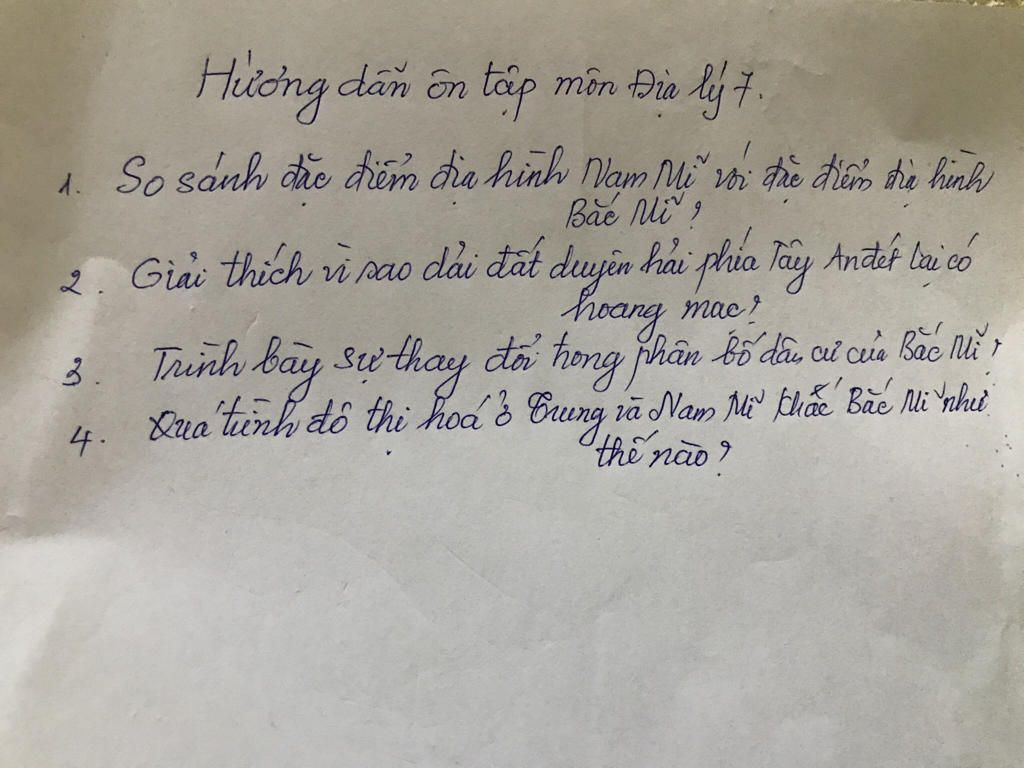 Hướng dẫn ôn tập môn Địa lý 7.
1. So sánh đặc điểm địa hình Nam Mĩ với đặc điểm địa hình
Bắc Mĩ?
2. Giải thích vì sao dải đất duyên hải phía Tây Anđét lại có
hoang mạc?
3. Trình bày sự thay đổi trong phân bố dân cư của Bắc Mĩ?
4. Quá trình đô thị hoá ở Trung và Nam Mĩ khác Bắc Mĩ như
thế nào?